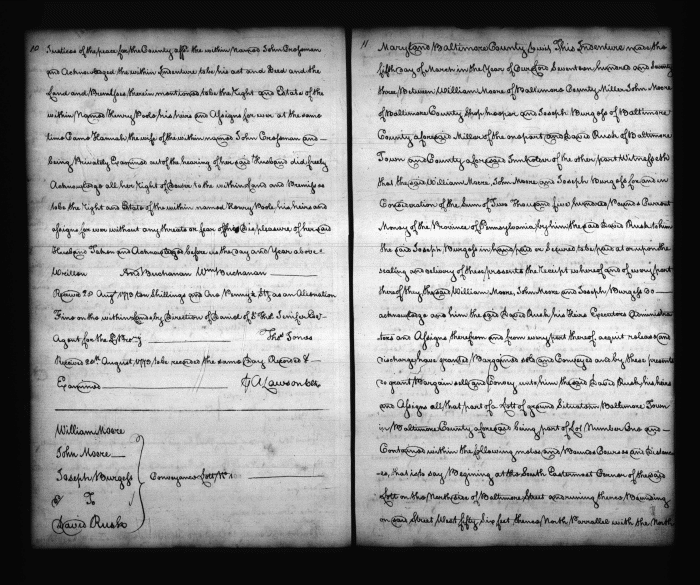 10
Justices of the peace for the County affd. the within Named John Crossman
and Acknowledged the within Indenture to be his act and Deed and the
Land and Premises therein mentioned to be the Right and Estate of the
within Named Henry Bode, his heirs and Assigns for ever at the same
time Came Hannah the wife of the within named John Crossman and
being Privately Examined out of the hearing of her said Husband did freely
Acknowledge all her Right of Dower to the within Land and Premises
to be the Right and Estate of the within named Henry Bode, his heirs and
assigns for ever without any threats or fear of his Displeasure of her said
Husband Taken and Acknowledged before us the day and Year above
Written And Buchanan Wm Buchanan
Received 20 Augt. 1773 ten Shillings and One Penny Stg as an Alienation
Fine on the within Land by Direction of Daniel of St Thos Jenifer Esqr
Agent for the Ld Propry Thos Jones
Received 20th August, 1773 to be recorded the same Day Recorded &
Examined A Lawson Clk
William Moore
John Moore
Joseph Burgess
To
David Rusk
Conveyance Lott No 1
11
Maryland Baltimore County Towit This Indenture made the
fifth day of March in the Year of Our Lord Seventeen hundred and Seventy
three Between William Moore of Baltimore County Miller John Moore
of Baltimore County Shop keeper and Joseph Burgess of Baltimore
County aforesaid Miller of the one part and David Rusk of Baltimore
Town and County aforesaid Innholder of the other part Witnesseth
that the said William Moore, John Moore and Joseph Burgess for and in
Consideration of the Sum of Two Thousand five hundred Pounds Current
Money of the Province of Pennsylvania by him the said David Rusk to him
the said Joseph Burgess in hand paid or Secured to be paid at or upon the
sealing and delivery of these presents the Receipt whereof and of every part
thereof they the said William Moore, John Moore and Joseph Burgess Do
acknowledge and him the said David Rusk, his Heirs Executors Administra
tors and Assigns therefrom and from every part thereof acquit release and
discharge have granted Bargained sold and Conveyed and by these presents
do grant Bargain sell and Convey unto him the said David Rusk, his heirs
and Assigns all that part of a Lott of ground Situate in Baltimore Town
in Baltimore County aforesaid being part of Lot Number One and
Contained within the following metes and Bounds Courses and Distanc
-es, that is to say Begining at the South Easternmost Corner of the said
Lott on the North side of Baltimore Street and runing thence Bounding
on said Street West fifty Six feet thence North Parrallel with the North